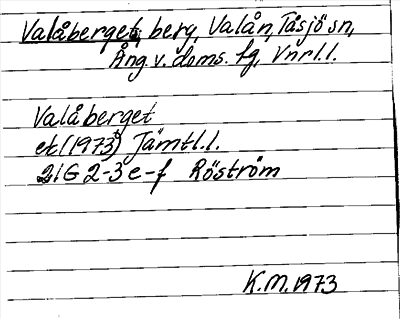 Valåberget, berg, Valån, Tåsjö sn,
Ång v. doms. fg, Vnrl.l.
Valåberget
et (1973) Jämtl.l.
21G 2-3 e-f Röström
K.M. 1973